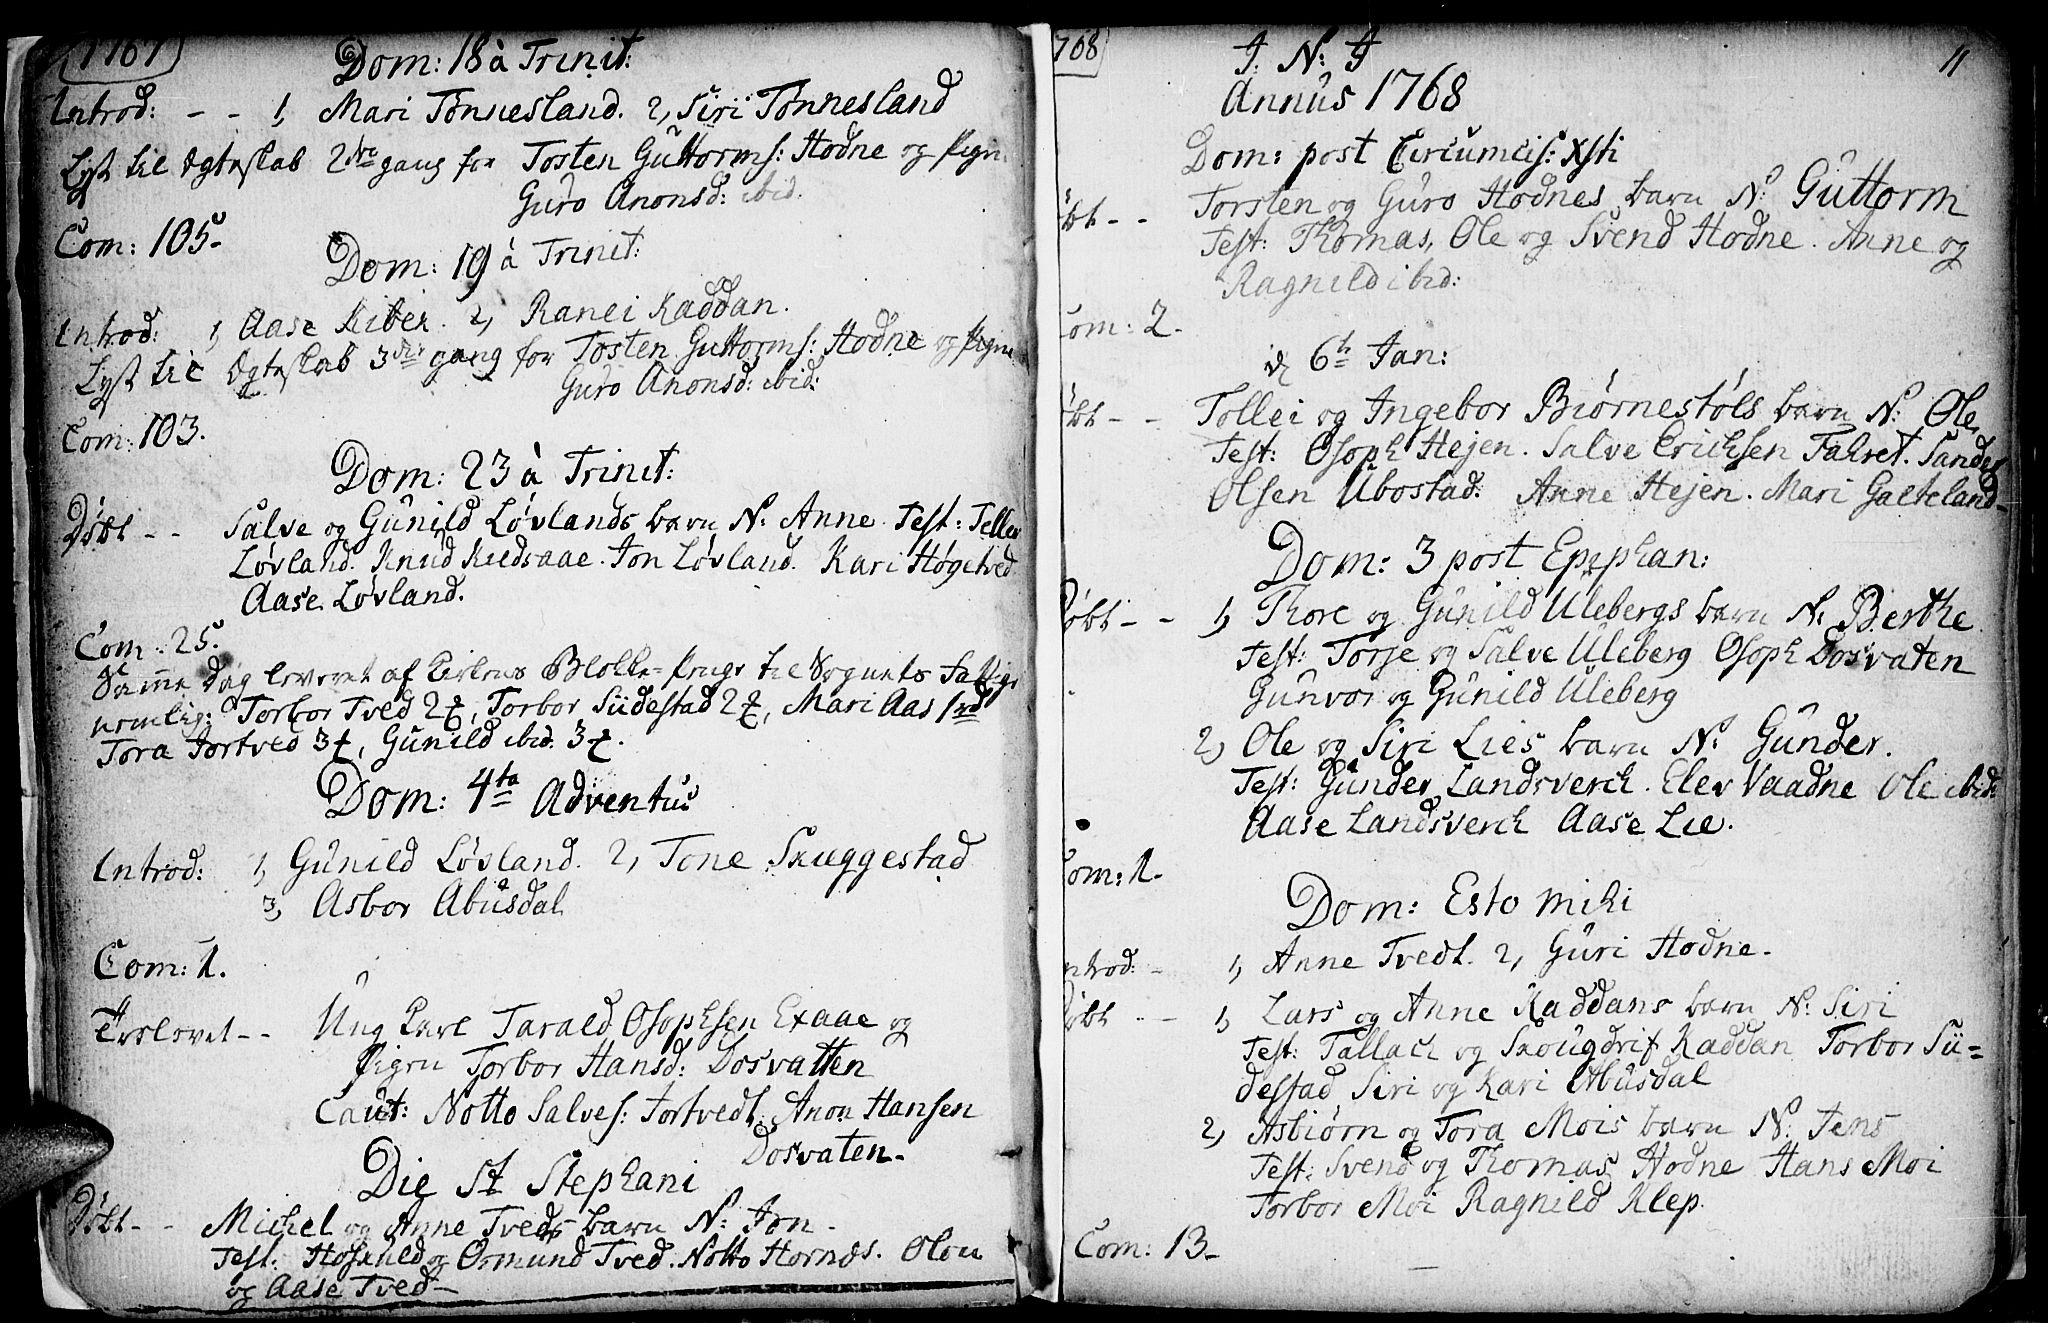 1767
Dom: 18 à Trinit:
Introd: - - 1, Mari Tønnesland. 2, Siri Tønnesland
Lyst til Ægteskab 2dre gang for Tosten Guttorms: Hodne og Pigen
Guro Anonsd: ibid.
Com: 105.
Dom: 19 à Trinit:
Introd: 1, Aase Kiber. 2, Ranei Kaddan.
Lyst til Ægteskab 3die gang for Tosten Guttorms: Hodne og Pigen
Guro Anonsd: ibid:
Com: 103.
Dom: 23 à Trinit:
Døbt - - Salve og Gunild Løvlands barn N: Anne. Test: Tellev
Løvland. Knud Kiedsaae. Jon Løvland. Kari Høgetved
Aase Løvland.
Com: 25.
Samme Dag leveret af Kirkens Blokke-Penge til Sognets Fattige
nemlig: Torbor Tved 2 , Torbor Südestad 2 , Mari Aas 1
Tora Jortved 3 , Gunild ibid. 3 .
Dom: 4ta Adventus
Introd: 1, Gunild Løvland. 2, Tone Skuggestad
3, Asbor Abusdal
Com: 1.
Troloved - - Ung Karl Tarald Osophsen Exaae og
Pigen Torbor Hansd: Dosvatten
Caut: Notto Salves: Jortvedt. Anon Hansen
Dosvaten.
Die St Stephani
Døbt - - Michel og Anne Tveds barn N: Jon.
Test: og Osmund Tved. Notto Hornes. Olou
og Aase Tved
768
11
J: N: J
Annus 1768
Dom: post Circumcis: Xsti
øbt - - Torsten og Guro Hodnes barn N: Guttorm
Test: Thomas, Ole og Svend Hodne. Anne og
Ragnild ibid:
Com: 2.
d 6te Jan:
øbt - - Tollei og Ingebor Biørnestøls barn N: Ole.
Test: Osoph Hejen. Salve Erichsen Fahret. Sander
Olsen Ubostad. Anne Hejen. Mari Gaeteland
Dom: 3 post Epiphan:
Døbt - - 1, Thore og Gunild Ulebergs barn N: Berthe
Test: Torje og Salve Uleberg Osoph Dosvaten
Gunvor og Gunild Uleberg
2, Ole og Siri Lies barn N: Gunder.
Test: Gunder Landsverck. Elev Vaadne Ole ibid:
Aase Landsverck Aase Lie.
Com: 1.
Dom: Esto mihi
Introd: - 1, Anne Tvedt. 2, Guri Hodne.
Døbt - - 1, Lars og Anne Kaddans barn N: Siri
Test: Tallack og Skougdrif Kaddan Torbor Sü=
destad Siri og Kari Abusdal
2, Asbiørn og Tora Mois barn N: Jens
Test: Svend og Thomas Hodne Hans Moi
Torbor Moi Ragnild Klep.
Com: 13.